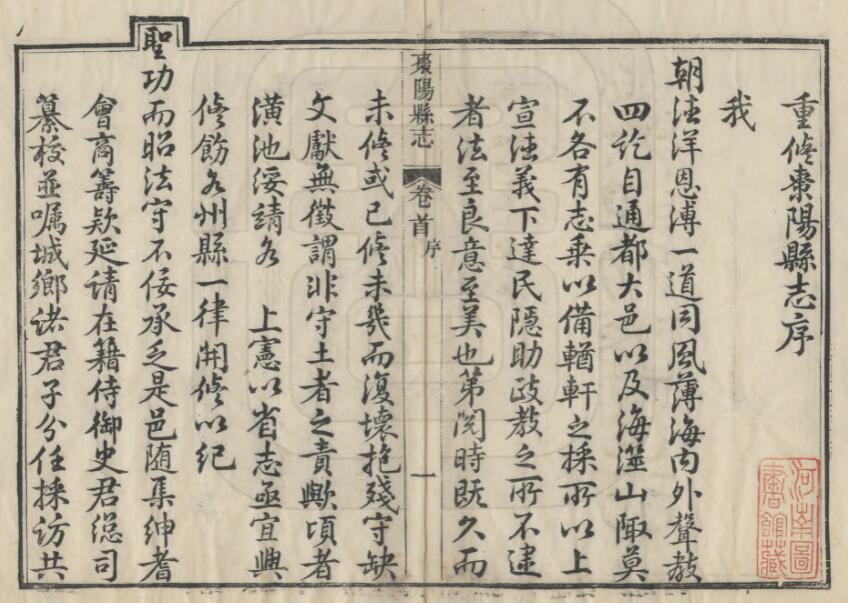 重修棗陽縣志序
我
朝德洋恩溥一道同風薄海內外聲教
四訖自通都大邑以及海澨山陬莫
不各有志乘以備輶軒之採所以上
宣德義下達民隱助政教之所不逮
者法至良意至美也第閱時既久而
棗陽縣志
卷首
序
一
未修或已修未幾而復壞抱殘守缺
文獻無徵謂非守土者之責歟頃者
潢池綏靖各 上憲以省志亟宜興
修飭各州縣一律開修以紀
聖功而昭法守不佞承乏是邑随集紳耆
會商籌款延請在籍侍御史君總司
纂校並囑城鄉諸君子分任採訪共
河南圖
書館藏